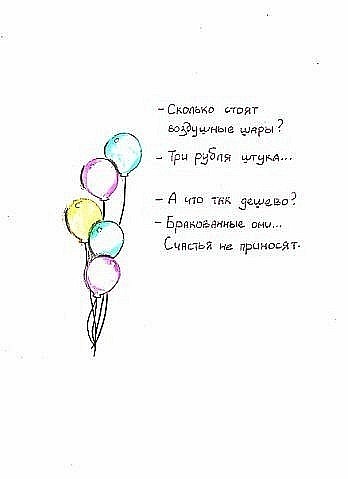 - Сколько стоят
воздушные шары?
- Три рубля штука...
- А что так дешево?
- Бракованные они...
Счастья не приносят.